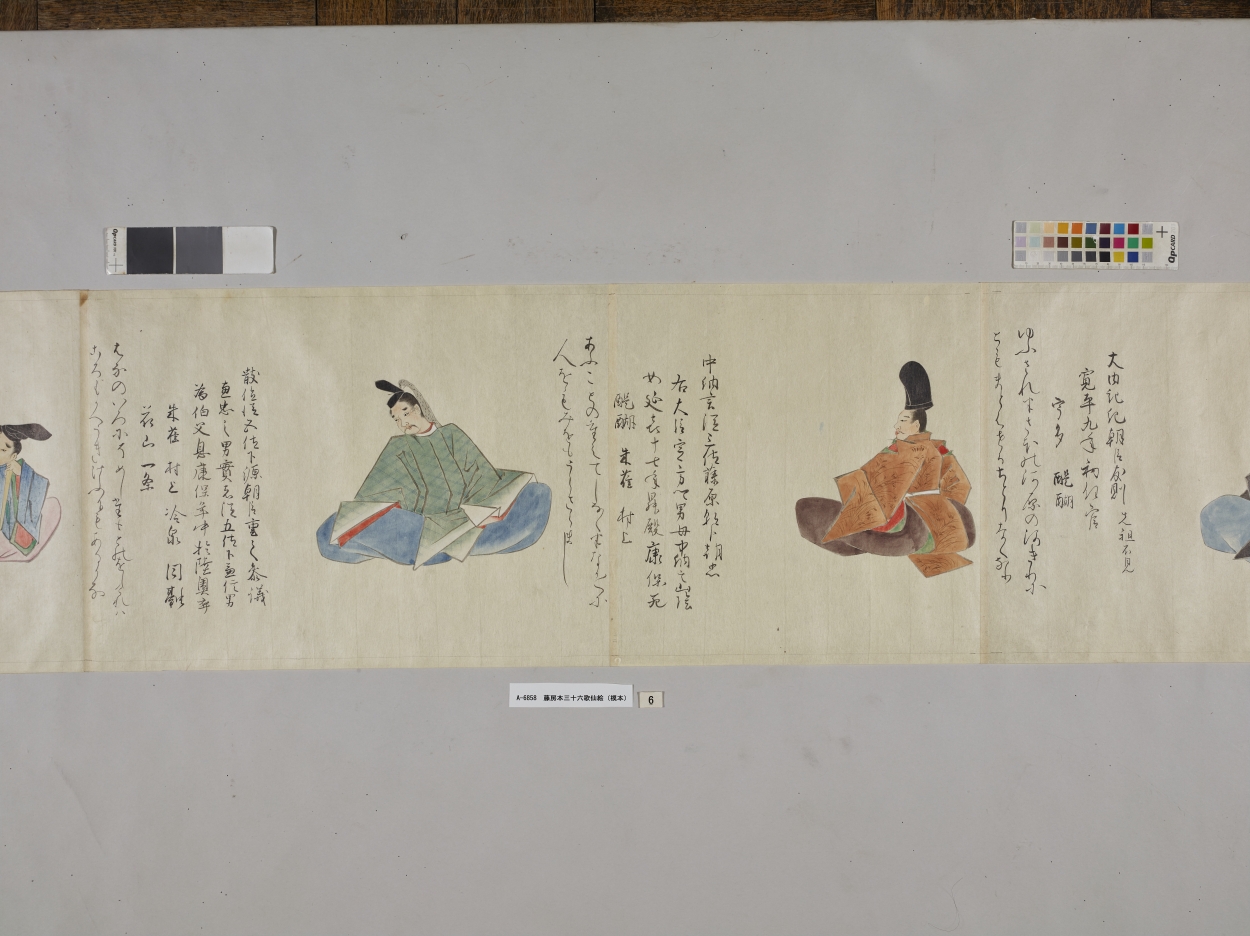 大内記紀朝臣友則 先祖不見
寛平九年初任官
宇多 醍醐
ゆふされはさほの河原の河きりに
ともまとはせるちとりなくなり
中納言従三位藤原朝臣朝忠
右大臣定方四男母中納言山蔭
女延喜十七年昇殿康保
醍醐 朱雀 村上
あふことのたえてしなくはなか／＼に
人をもみをもうらみさらまし
散位従五位下源朝臣重之参議
兼忠之男實者従五位下兼信男
為伯父息康保年中於陸奥卒
朱雀 村上 冷泉 円融
花山 一条
はなのいろにそめしたもとのをしけれは
ころもかへうきけふにもあるかな
A-6858 藤房本三十六歌仙絵（模本）
6
QPCARD
QPCARD